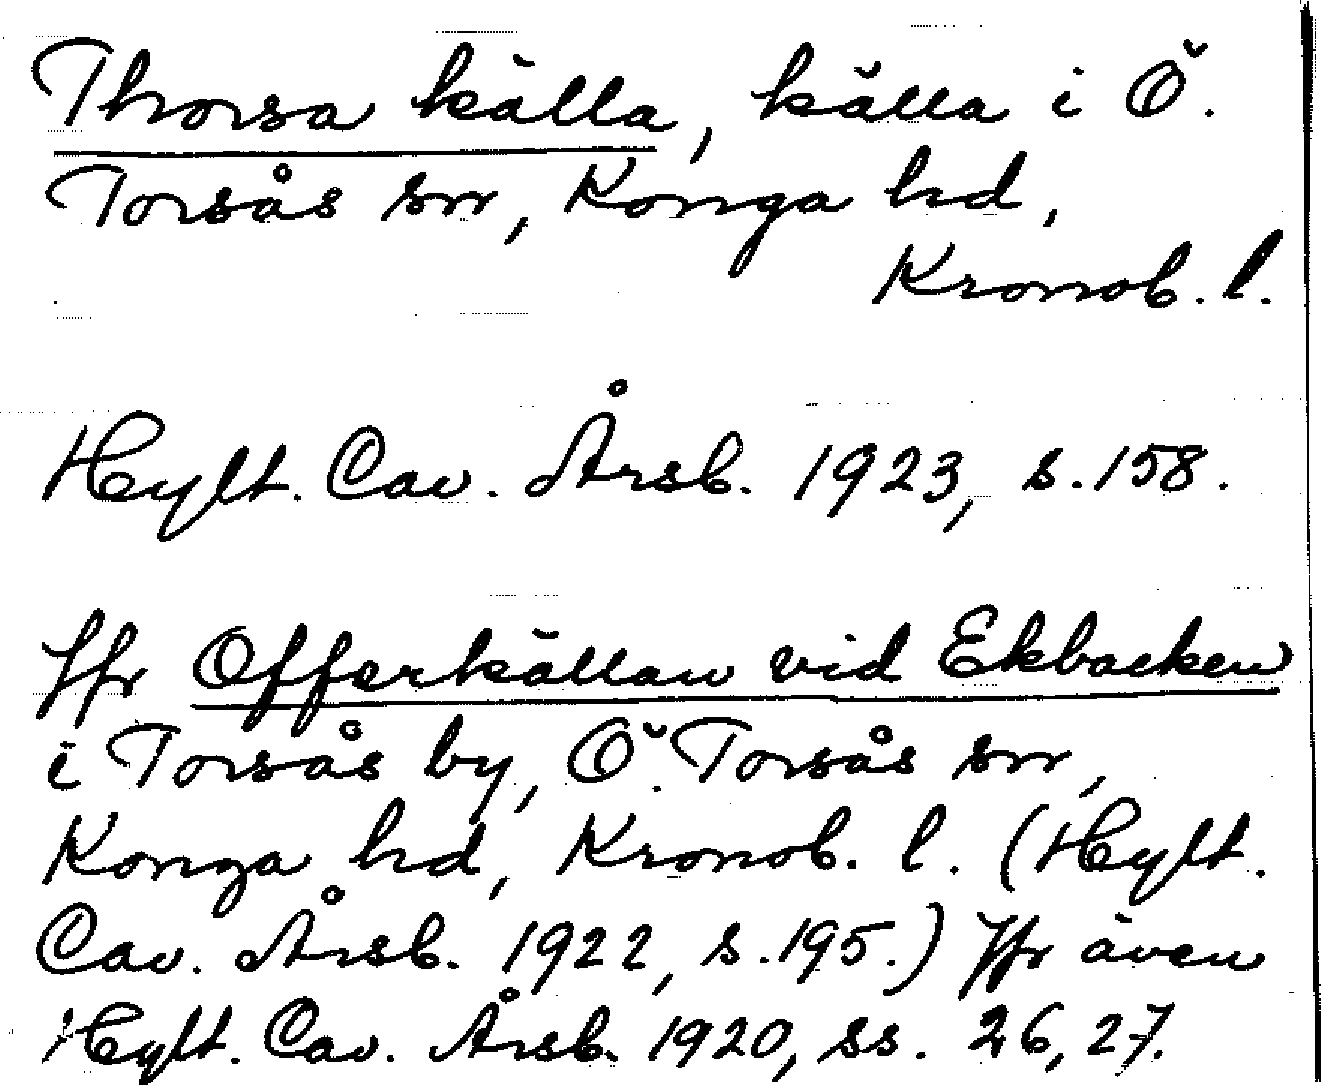 Thorsa källa, källa i Ö.
Torsås sn, Konga hd,
Kronob. l.
Hylt. Cav. Årsb. 1923, s. 158.
Jfr Offerkällan vid Ekbacken
i Torsås by, Ö. Torsås sn,
Konga hd, Kronob. l. (Hylt.
Cav. Årsb. 1922, s. 195.) Jfr även
Hylt. Cav. Årsb. 1920, ss. 26, 27.